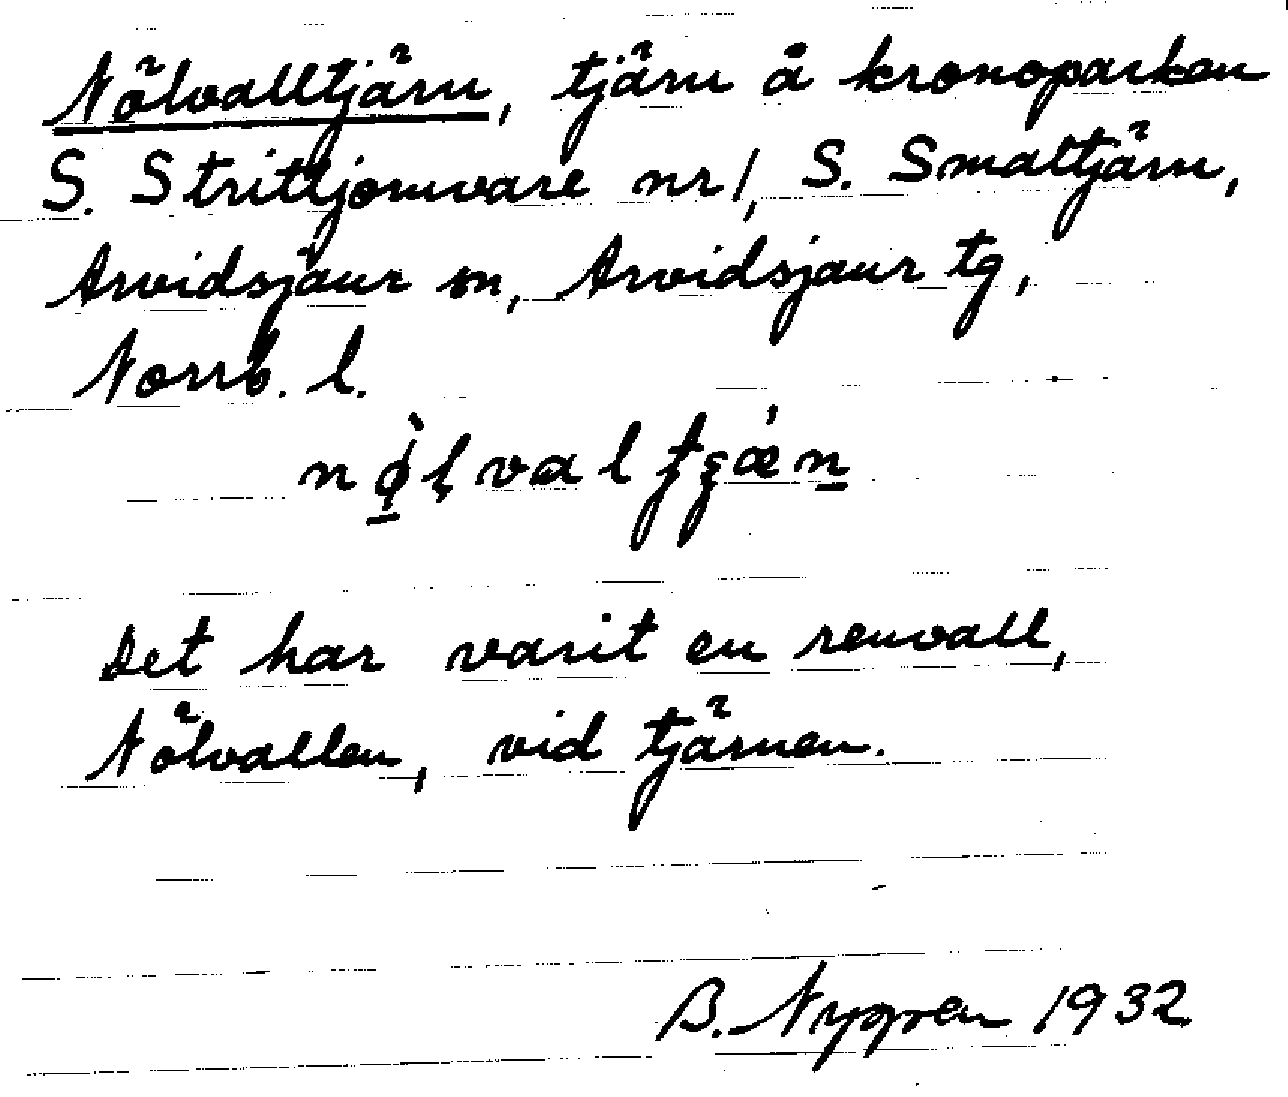 Nölvalltjärn, tjärn å kronoparken
S. Strittjomvare nr 1, S. Smaltjärn,
Arvidsjaur sn, Arvidsjaur tg,
Norrb. l.
Det har varit en renvall,
Nölvallen, vid tjärnen.
B. Nygren 1932